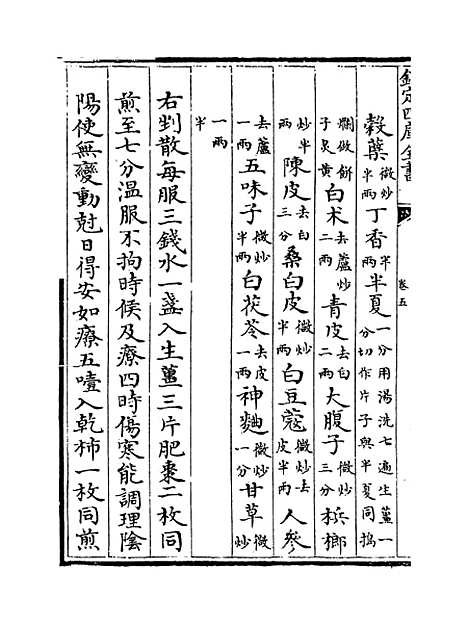 欽定四庫全書
卷五
穀蘗微炒半兩丁香半兩半夏一分用湯洗七遍生薑一分切作片子與半夏同搗
爛做餅子炙黃白术去蘆炒二兩青皮去白二兩大腹子微炒三分梹榔
炒半兩陳皮去白三分桑白皮微炒半兩白豆蔻微炒去皮半兩人參
去蘆一兩五味子微炒半兩白茯苓去皮一兩神麯微炒一分甘草微炒
一兩半
右剉散每服三錢水一盞入生薑三片肥棗二枚同
煎至七分温服不拘時候及療四時傷寒能調理陰
陽使無變動尅日得安如療五噎入乾柿一枚同煎